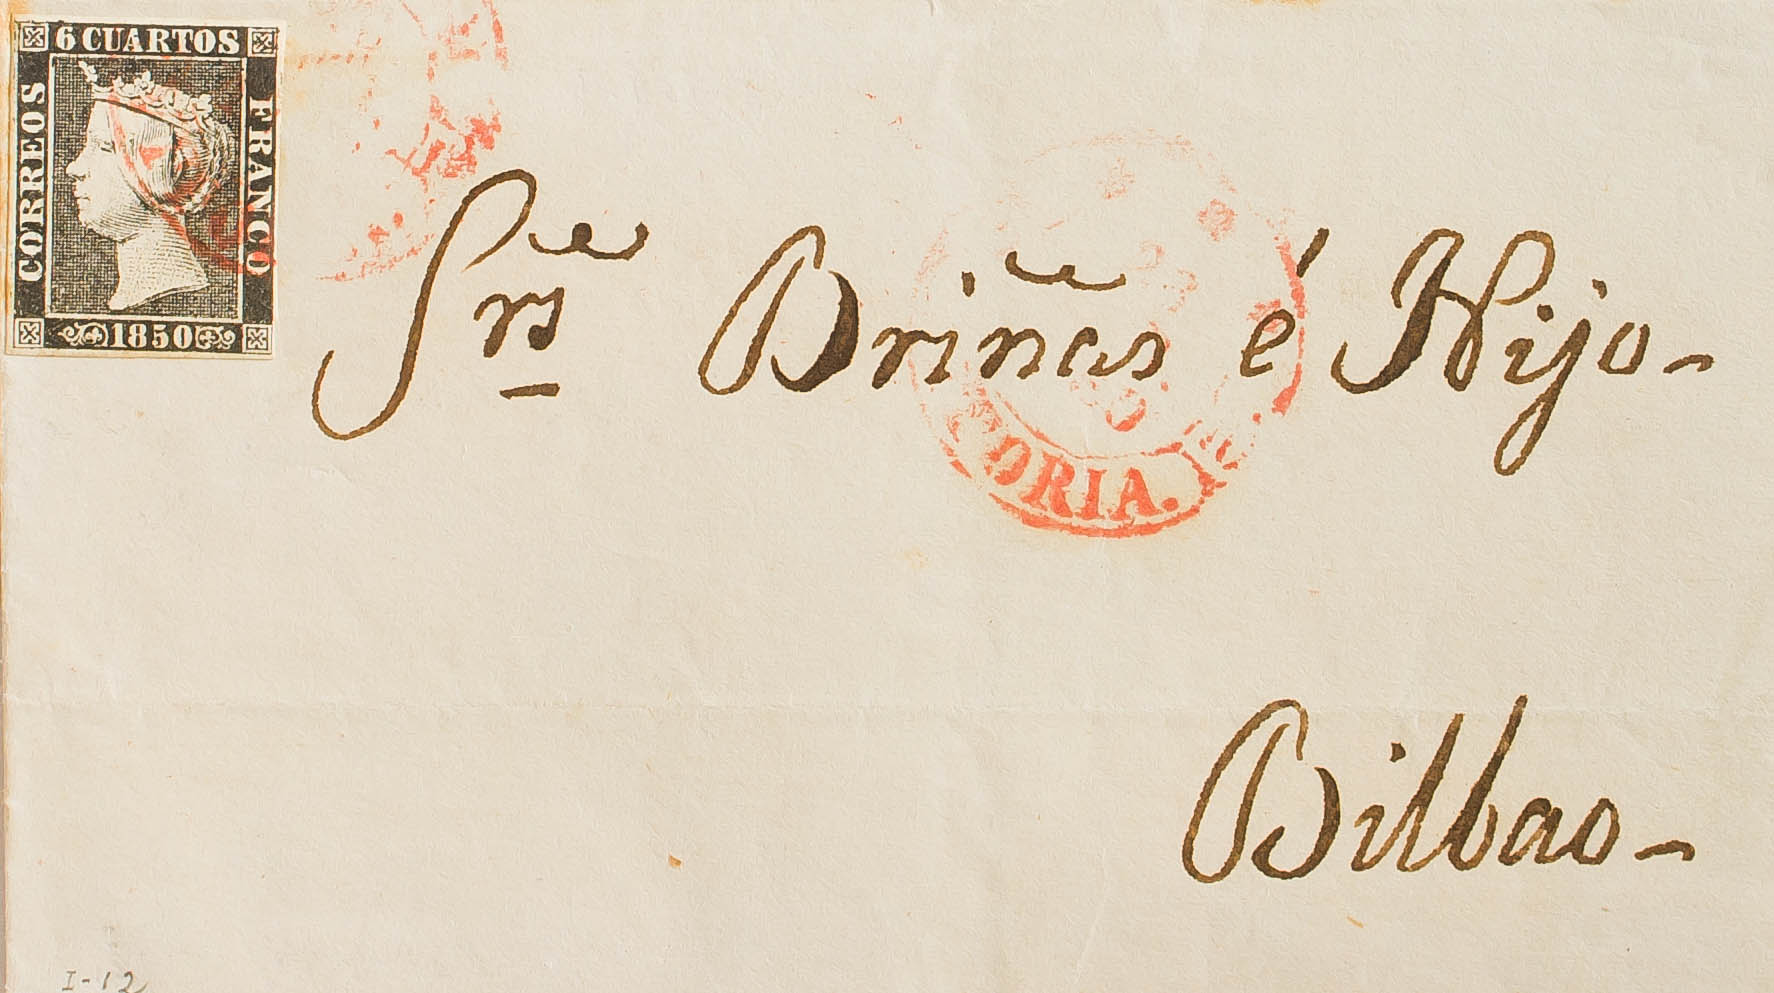 6 CUARTOS
CORREOS
FRANCO
1850
Srs Briñas é Hijo-
TORIA.
Bilbao-
I-12